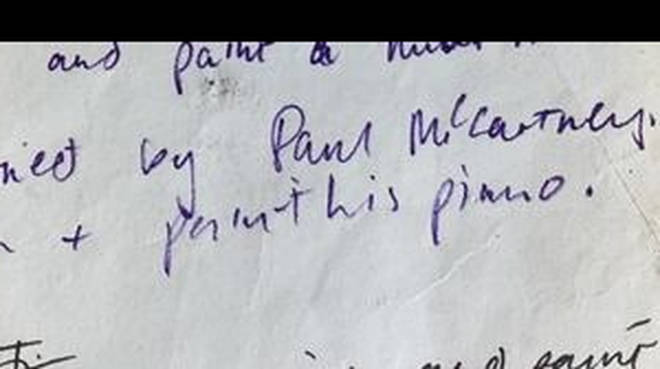 and paint a
by Paul McCartney.
+ paint his piano.
and paint